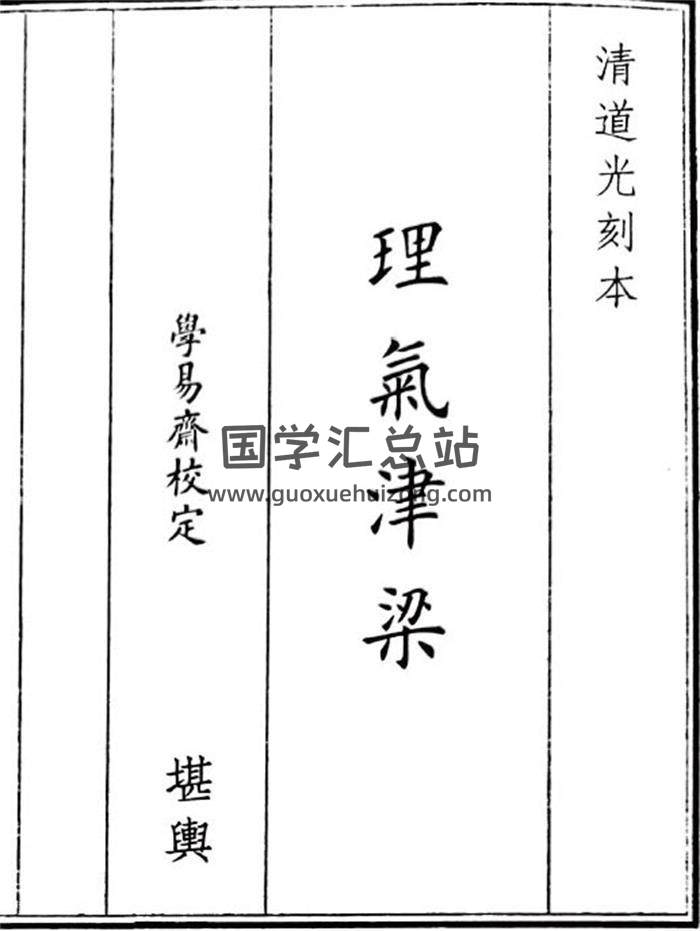 清道光刻本
理氣津梁
學易齋校定
堪輿
国学汇总站
www.guoxuehuizong.com